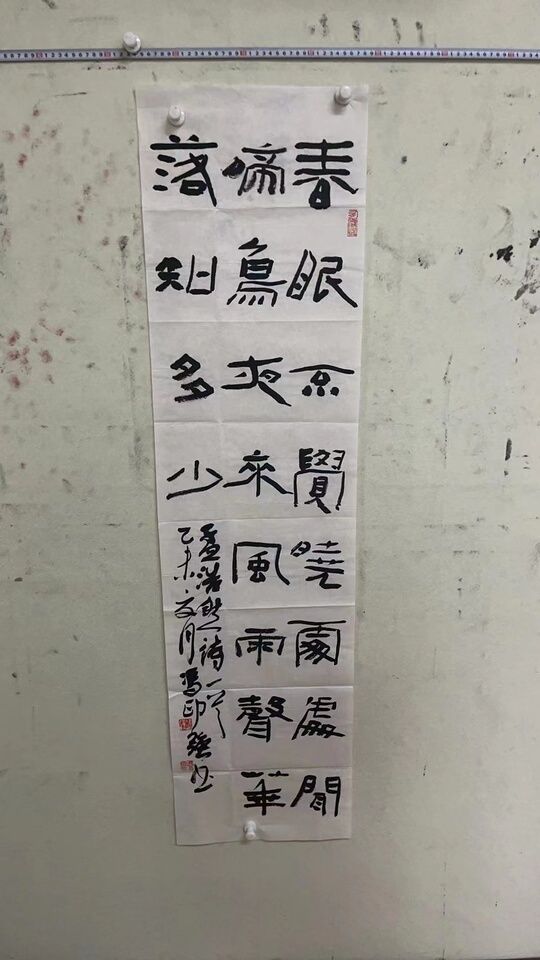 春眠不覺曉處處聞
啼鳥夜來風雨聲華
落知多少
孟浩然詩一首
乙未夏月馮印強書